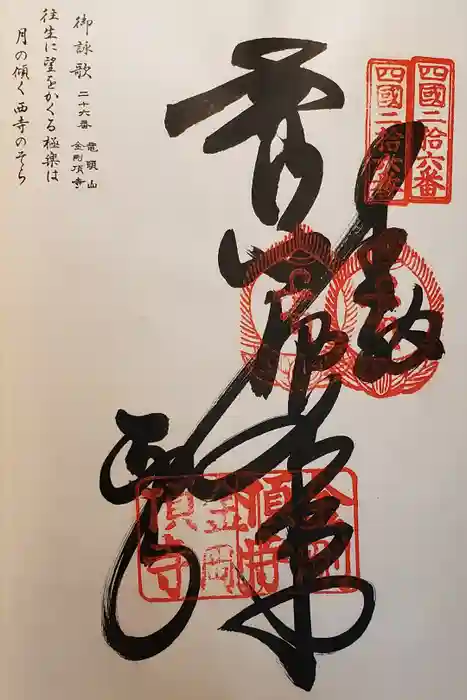 四國二拾六番
四國二拾六番
奉納
西寺
金剛頂寺
金剛頂寺
御詠歌 二十六番 龍頭山 金剛頂寺
往生に望をかくる極楽は
月の傾く西寺のそら